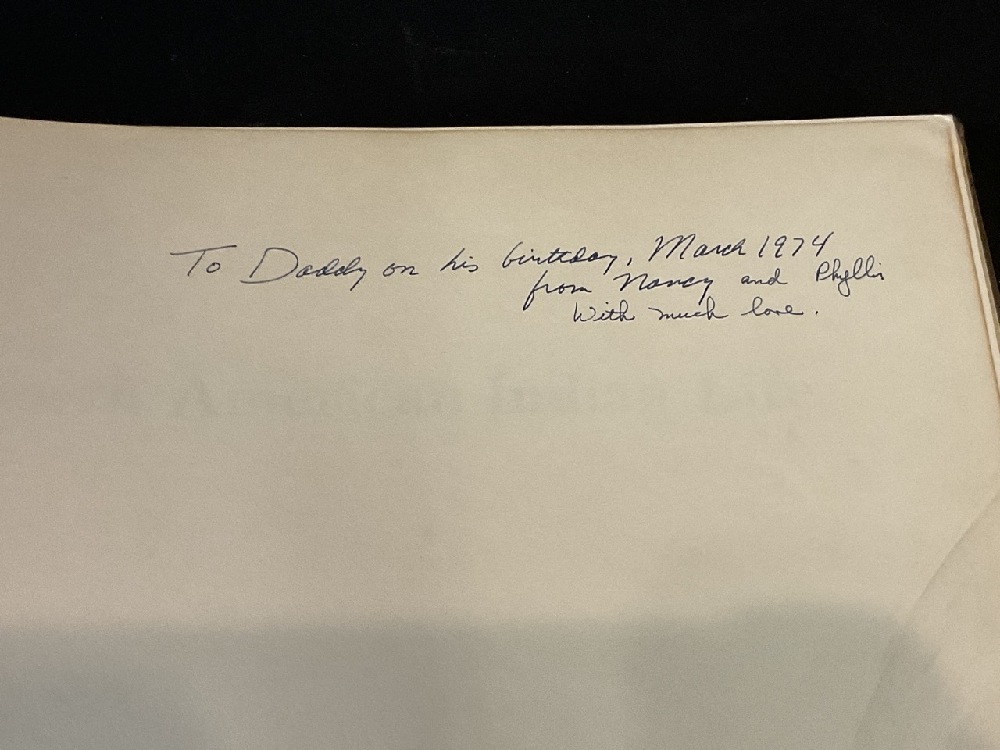 To Daddy on his birthday, March 1974
from Nancy and Phyllis
With much love.